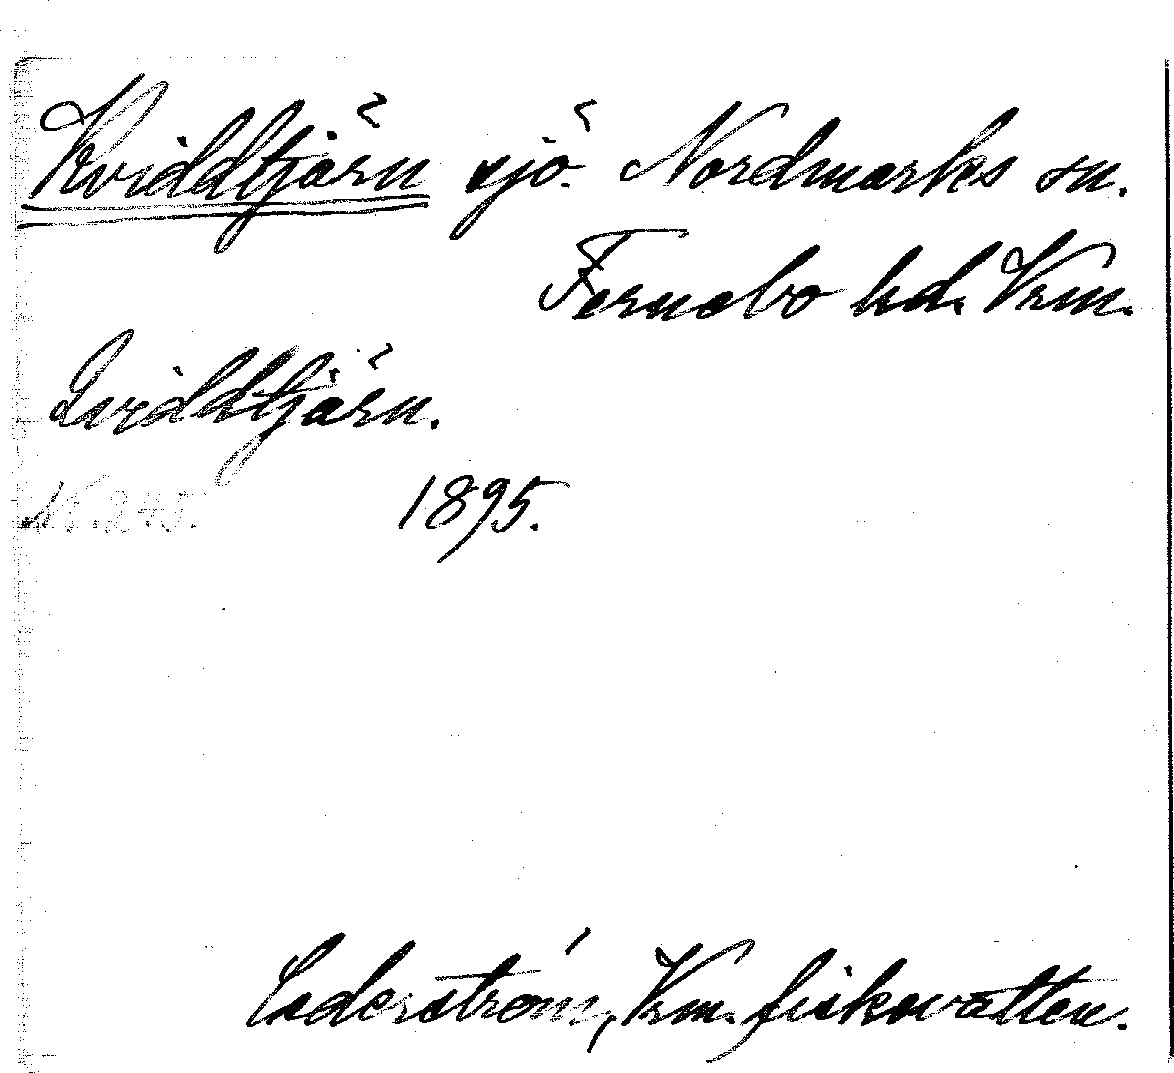 Kviddtjärn sjö. Nordmarks sn.
Fernebo hd. Vrm.
Qviddtjärn.
N. 245. 1895.
Cederström, Vrm. fiskevatten.